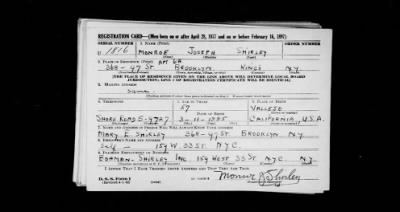 REGISTRATION CARD—(Men born on or after April 28, 1877 and on or before February 16, 1897)
SERIAL NUMBER 1. NAME (Print)
U 1816 MONROE JOSEPH SHIRLEY
2. PLACE OF RESIDENCE (Print) APT 6A
368 - 47 ST BROOKLYN KINGS N.Y.
[THE PLACE OF RESIDENCE GIVEN ON THE LINE ABOVE WILL DETERMINE LOCAL BOARD
JURISDICTION; LINE 2 OF REGISTRATION CERTIFICATE WILL BE IDENTICAL]
3. MAILING ADDRESS
Same
4. TELEPHONE 5. AGE IN YEARS 6. PLACE OF BIRTH
57 VALLEJO
SHORE ROAD 5-4727 3-11-1885 CALIFORNIA, U.S.A.
7. NAME AND ADDRESS OF PERSON WHO WILL ALWAYS KNOW YOUR ADDRESS
MARY E. SHIRLEY 368-47 ST BROOKLYN N.Y.
8. EMPLOYER'S NAME AND ADDRESS
Self - 159 W 33 ST N.Y.C.
9. PLACE OF EMPLOYMENT OR BUSINESS
SHIRLEY INC. 159 WEST 33 ST N.Y.C. N.Y.
I AFFIRM THAT I HAVE VERIFIED ABOVE ANSWERS AND THAT THEY ARE TRUE.
D. S. S. Form 1
Monroe J Shirley